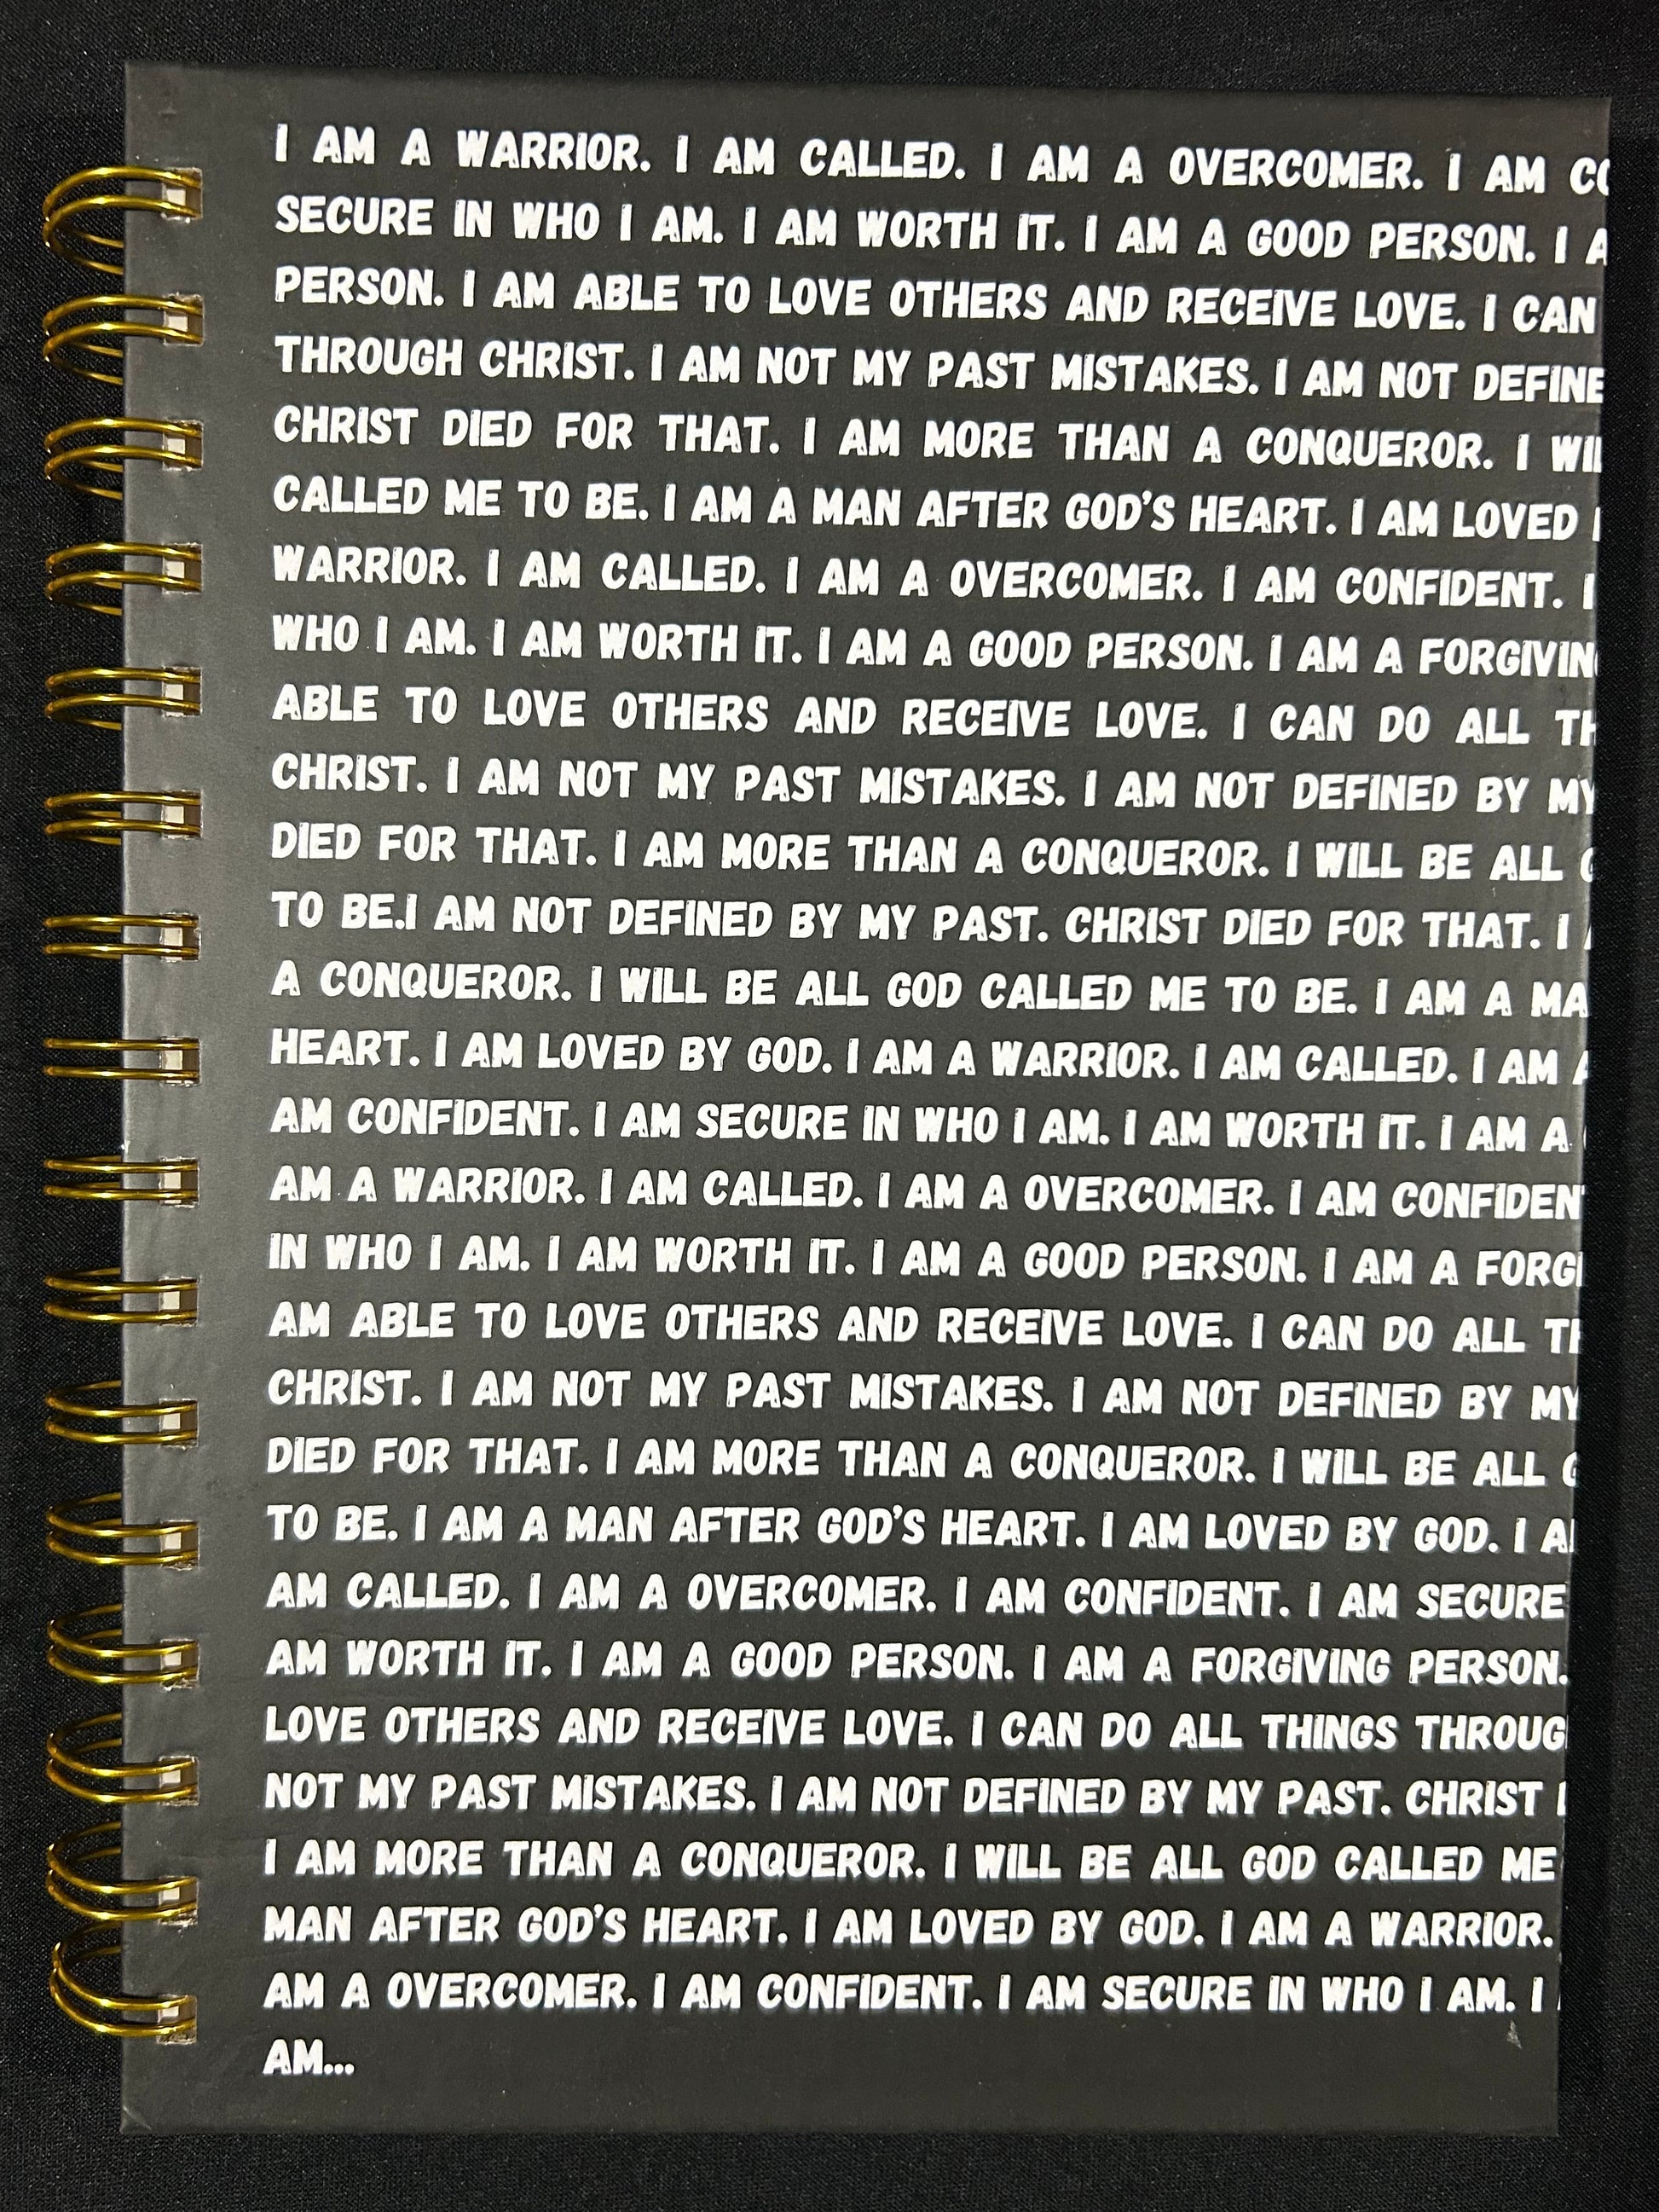 I AM A WARRIOR. I AM CALLED. I AM A OVERCOMER. I AM
SECURE IN WHO I AM. I AM WORTH IT. I AM A GOOD PERSON. I
PERSON. I AM ABLE TO LOVE OTHERS AND RECEIVE LOVE. I CAN
THROUGH CHRIST. I AM NOT MY PAST MISTAKES. I AM NOT DEFINE
CHRIST DIED FOR THAT. I AM MORE THAN A CONQUEROR. I
CALLED ME TO BE. I AM A MAN AFTER GOD'S HEART. I AM LOVED
WARRIOR. I AM CALLED. I AM A OVERCOMER. I AM CONFIDENT. I
WHO I AM. I AM WORTH IT. I AM A GOOD PERSON. I AM A FORGIVIN
ABLE TO LOVE OTHERS AND RECEIVE LOVE. I CAN DO ALL
CHRIST. I AM NOT MY PAST MISTAKES. I AM NOT DEFINED BY MY
DIED FOR THAT. I AM MORE THAN A CONQUEROR. I WILL BE ALL
TO BE.I AM NOT DEFINED BY MY PAST. CHRIST DIED FOR THAT. I
A CONQUEROR. I WILL BE ALL GOD CALLED ME TO BE. I AM A MA
HEART. I AM LOVED BY GOD. I AM A WARRIOR. I AM CALLED. I AM
AM CONFIDENT. I AM SECURE IN WHO I AM. I AM WORTH IT. I AM A
AM A WARRIOR. I AM CALLED. I AM A OVERCOMER. I AM CONFIDEN
IN WHO I AM. I AM WORTH IT. I AM A GOOD PERSON. I AM A FORGI
AM ABLE TO LOVE OTHERS AND RECEIVE LOVE. I CAN DO ALL
CHRIST. I AM NOT MY PAST MISTAKES. I AM NOT DEFINED BY MY
DIED FOR THAT. I AM MORE THAN A CONQUEROR. I WILL BE ALL
TO BE. I AM A MAN AFTER GOD'S HEART. I AM LOVED BY GOD. I A
AM CALLED. I AM A OVERCOMER. I AM CONFIDENT. I AM SECURE
AM WORTH IT. I AM A GOOD PERSON. I AM A FORGIVING PERSON.
LOVE OTHERS AND RECEIVE LOVE. I CAN DO ALL THINGS THROUG
NOT MY PAST MISTAKES. I AM NOT DEFINED BY MY PAST. CHRIST
I AM MORE THAN A CONQUEROR. I WILL BE ALL GOD CALLED ME
MAN AFTER GOD'S HEART. I AM LOVED BY GOD. I AM A WARRIOR.
AM A OVERCOMER. I AM CONFIDENT. I AM SECURE IN WHO I AM. I
AM...